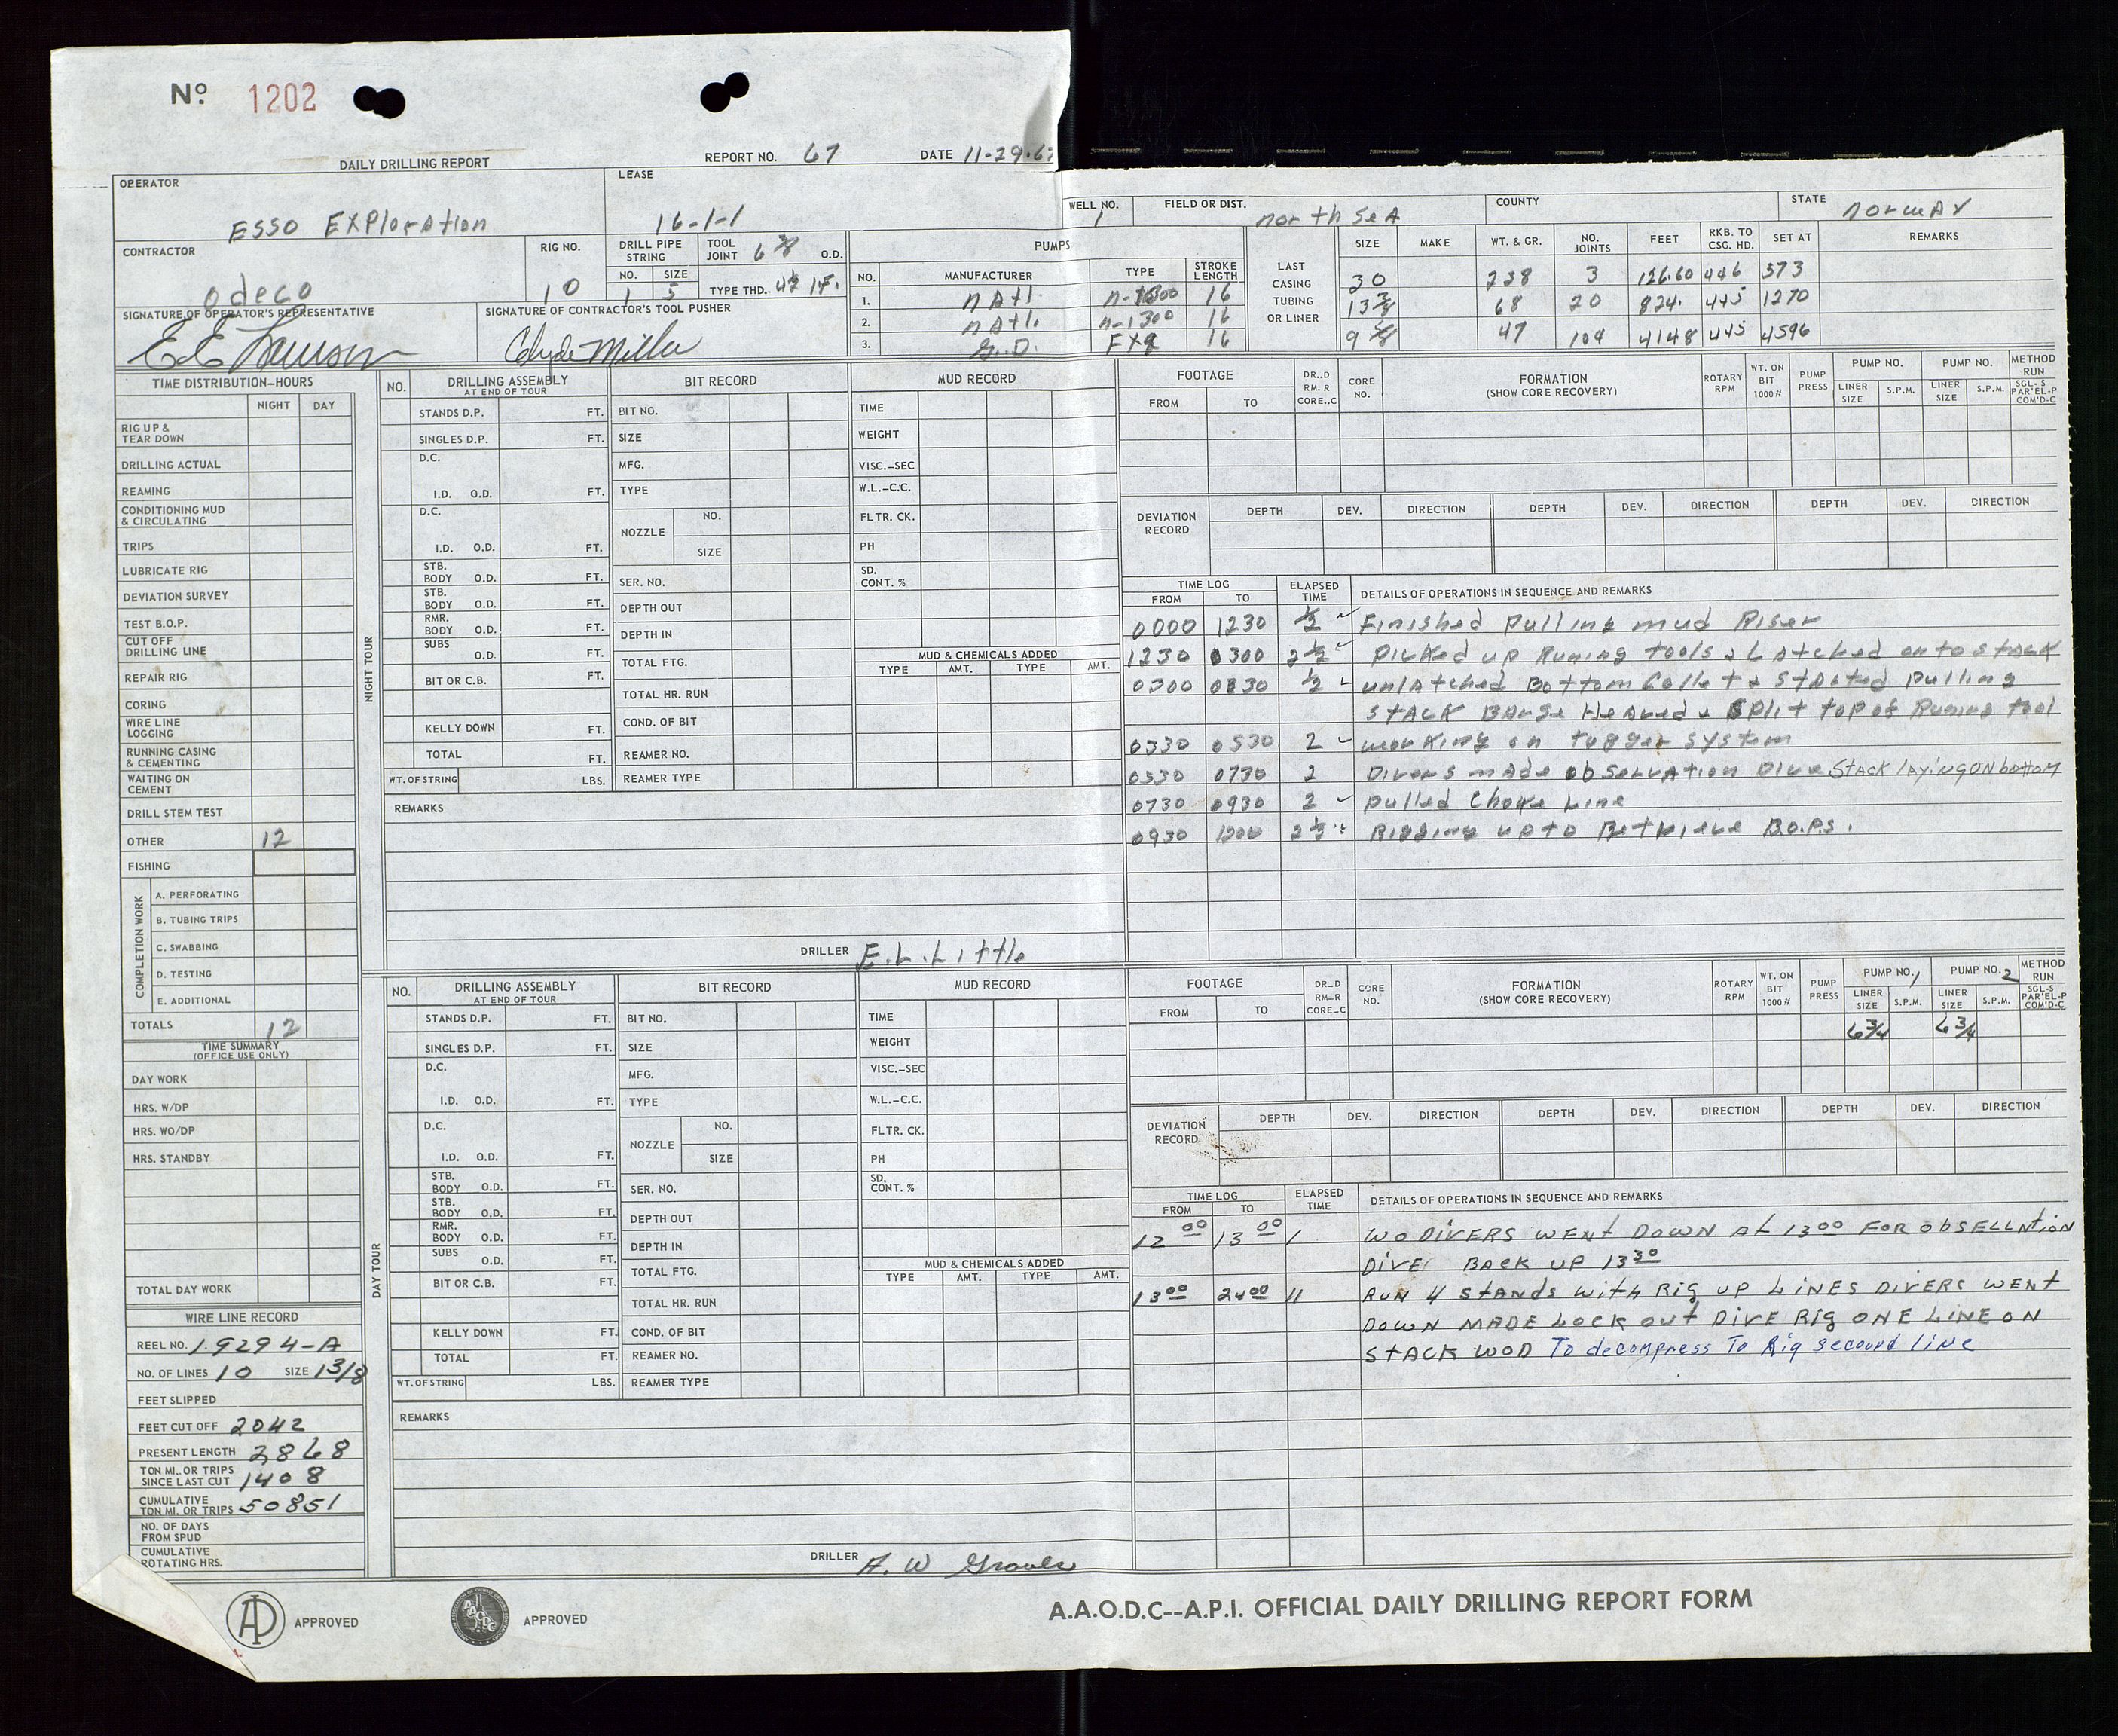 Nº 1202
DAILY DRILLING REPORT REPORT NO. 67 DATE 11-29-6
OPERATOR ESSO EXPloration LEASE 16-1-1 WELL NO. 1 FIELD OR DIST. north SeA COUNTY STATE norwAY
CONTRACTOR Odeco RIG NO. 10 DRILL PIPE STRING NO. 1 SIZE 5 TOOL JOINT 6 3/8 O.D. TYPE THD. 4½ I.F.
SIGNATURE OF OPERATOR'S REPRESENTATIVE SIGNATURE OF CONTRACTOR'S TOOL PUSHER Clyde Miller
PUMPS
NO. MANUFACTURER TYPE STROKE LENGTH
1. nAtl. n-1300 16
2. nAtl. n-1300 16
3. G.D. FXQ 16
LAST CASING TUBING OR LINER
SIZE MAKE WT. & GR. NO. JOINTS FEET RKB. TO CSG. HD. SET AT REMARKS
30 238 3 126.60 446 573
13 3/8 68 20 824. 445 1270
9 5/8 47 104 4148 445 4596
TIME DISTRIBUTION-HOURS
NIGHT DAY
RIG UP & TEAR DOWN
DRILLING ACTUAL
REAMING
CONDITIONING MUD & CIRCULATING
TRIPS
LUBRICATE RIG
DEVIATION SURVEY
TEST B.O.P.
CUT OFF DRILLING LINE
REPAIR RIG
CORING
WIRE LINE LOGGING
RUNNING CASING & CEMENTING
WAITING ON CEMENT
DRILL STEM TEST
OTHER 12
FISHING
COMPLETION WORK
A. PERFORATING
B. TUBING TRIPS
C. SWABBING
D. TESTING
E. ADDITIONAL
TOTALS 12
TIME SUMMARY (OFFICE USE ONLY)
DAY WORK
HRS. W/DP
HRS. WO/DP
HRS. STANDBY
TOTAL DAY WORK
WIRE LINE RECORD
REEL NO. 19294-A
NO. OF LINES 10 SIZE 13/8
FEET SLIPPED
FEET CUT OFF 2042
PRESENT LENGTH 2868
TON MI. OR TRIPS SINCE LAST CUT 1408
CUMULATIVE TON MI. OR TRIPS 50851
NO. OF DAYS FROM SPUD
CUMULATIVE ROTATING HRS.
NIGHT TOUR
NO. DRILLING ASSEMBLY AT END OF TOUR
STANDS D.P. FT.
SINGLES D.P. FT.
D.C.
I.D. O.D. FT.
D.C.
I.D. O.D. FT.
STB. BODY O.D. FT.
STB. BODY O.D. FT.
RMR. BODY O.D. FT.
SUBS O.D. FT.
BIT OR C.B. FT.
KELLY DOWN FT.
TOTAL FT.
WT. OF STRING LBS.
BIT RECORD
BIT NO.
SIZE
MFG.
TYPE
NOZZLE NO. SIZE
SER. NO.
DEPTH OUT
DEPTH IN
TOTAL FTG.
TOTAL HR. RUN
COND. OF BIT
REAMER NO.
REAMER TYPE
MUD RECORD
TIME
WEIGHT
VISC.-SEC
W.L.-C.C.
FLTR. CK.
PH
SD. CONT. %
MUD & CHEMICALS ADDED
TYPE AMT. TYPE AMT.
REMARKS
DRILLER E.L. Little
FOOTAGE FROM TO DR..D RM.R CORE..C CORE NO. FORMATION (SHOW CORE RECOVERY) ROTARY RPM WT. ON BIT 1000# PUMP PRESS PUMP NO. LINER SIZE S.P.M. PUMP NO. LINER SIZE S.P.M. METHOD RUN SGL-S PAR'EL-P COM'D-C
DEVIATION RECORD DEPTH DEV. DIRECTION DEPTH DEV. DIRECTION DEPTH DEV. DIRECTION
TIME LOG FROM TO ELAPSED TIME DETAILS OF OPERATIONS IN SEQUENCE AND REMARKS
0000 1230 ½ Finished pulling mud Riser
1230 0300 2½ picked up Runing tools & Latched onto stack
0300 0330 ½ unlatched Bottom Collet & Started pulling
STACK BArge HeAved & Split top of Runing tool
0330 0530 2 working on tugger system
0530 0730 2 Divers mAde observAtion Dive Stack layingON bottom
0730 0930 2 pulled Choke Line
0930 1200 2½ Rigging up to Retrieve B.O.P.S.
DAY TOUR
NO. DRILLING ASSEMBLY AT END OF TOUR
STANDS D.P. FT.
SINGLES D.P. FT.
D.C.
I.D. O.D. FT.
D.C.
I.D. O.D. FT.
STB. BODY O.D. FT.
STB. BODY O.D. FT.
RMR. BODY O.D. FT.
SUBS O.D. FT.
BIT OR C.B. FT.
KELLY DOWN FT.
TOTAL FT.
WT. OF STRING LBS.
BIT RECORD
BIT NO.
SIZE
MFG.
TYPE
NOZZLE NO. SIZE
SER. NO.
DEPTH OUT
DEPTH IN
TOTAL FTG.
TOTAL HR. RUN
COND. OF BIT
REAMER NO.
REAMER TYPE
MUD RECORD
TIME
WEIGHT
VISC.-SEC
W.L.-C.C.
FLTR. CK.
PH
SD. CONT. %
MUD & CHEMICALS ADDED
TYPE AMT. TYPE AMT.
REMARKS
DRILLER A. W
FOOTAGE FROM TO DR..D RM..R CORE..C CORE NO. FORMATION (SHOW CORE RECOVERY) ROTARY RPM WT. ON BIT 1000# PUMP PRESS PUMP NO. 1 LINER SIZE S.P.M. PUMP NO. 2 LINER SIZE S.P.M. METHOD RUN SGL-S PAR'EL-P COM'D-C
6¾ 6¾
DEVIATION RECORD DEPTH DEV. DIRECTION DEPTH DEV. DIRECTION DEPTH DEV. DIRECTION
TIME LOG FROM TO ELAPSED TIME DETAILS OF OPERATIONS IN SEQUENCE AND REMARKS
12 00 13 00 1 WO DIVERS WENT DOWN At 13 00 FOR obSELLAtiON
DiVE BACK UP 13 30
13 00 24 00 11 RUN 4 StANdS with Rig UP LiNES DIVERS WENT
DOWN MADE LOCK Out DIVE Rig ONE LINE ON
StACK WOD To decompress To Rig secound line
APPROVED APPROVED
A.A.O.D.C--A.P.I. OFFICIAL DAILY DRILLING REPORT FORM